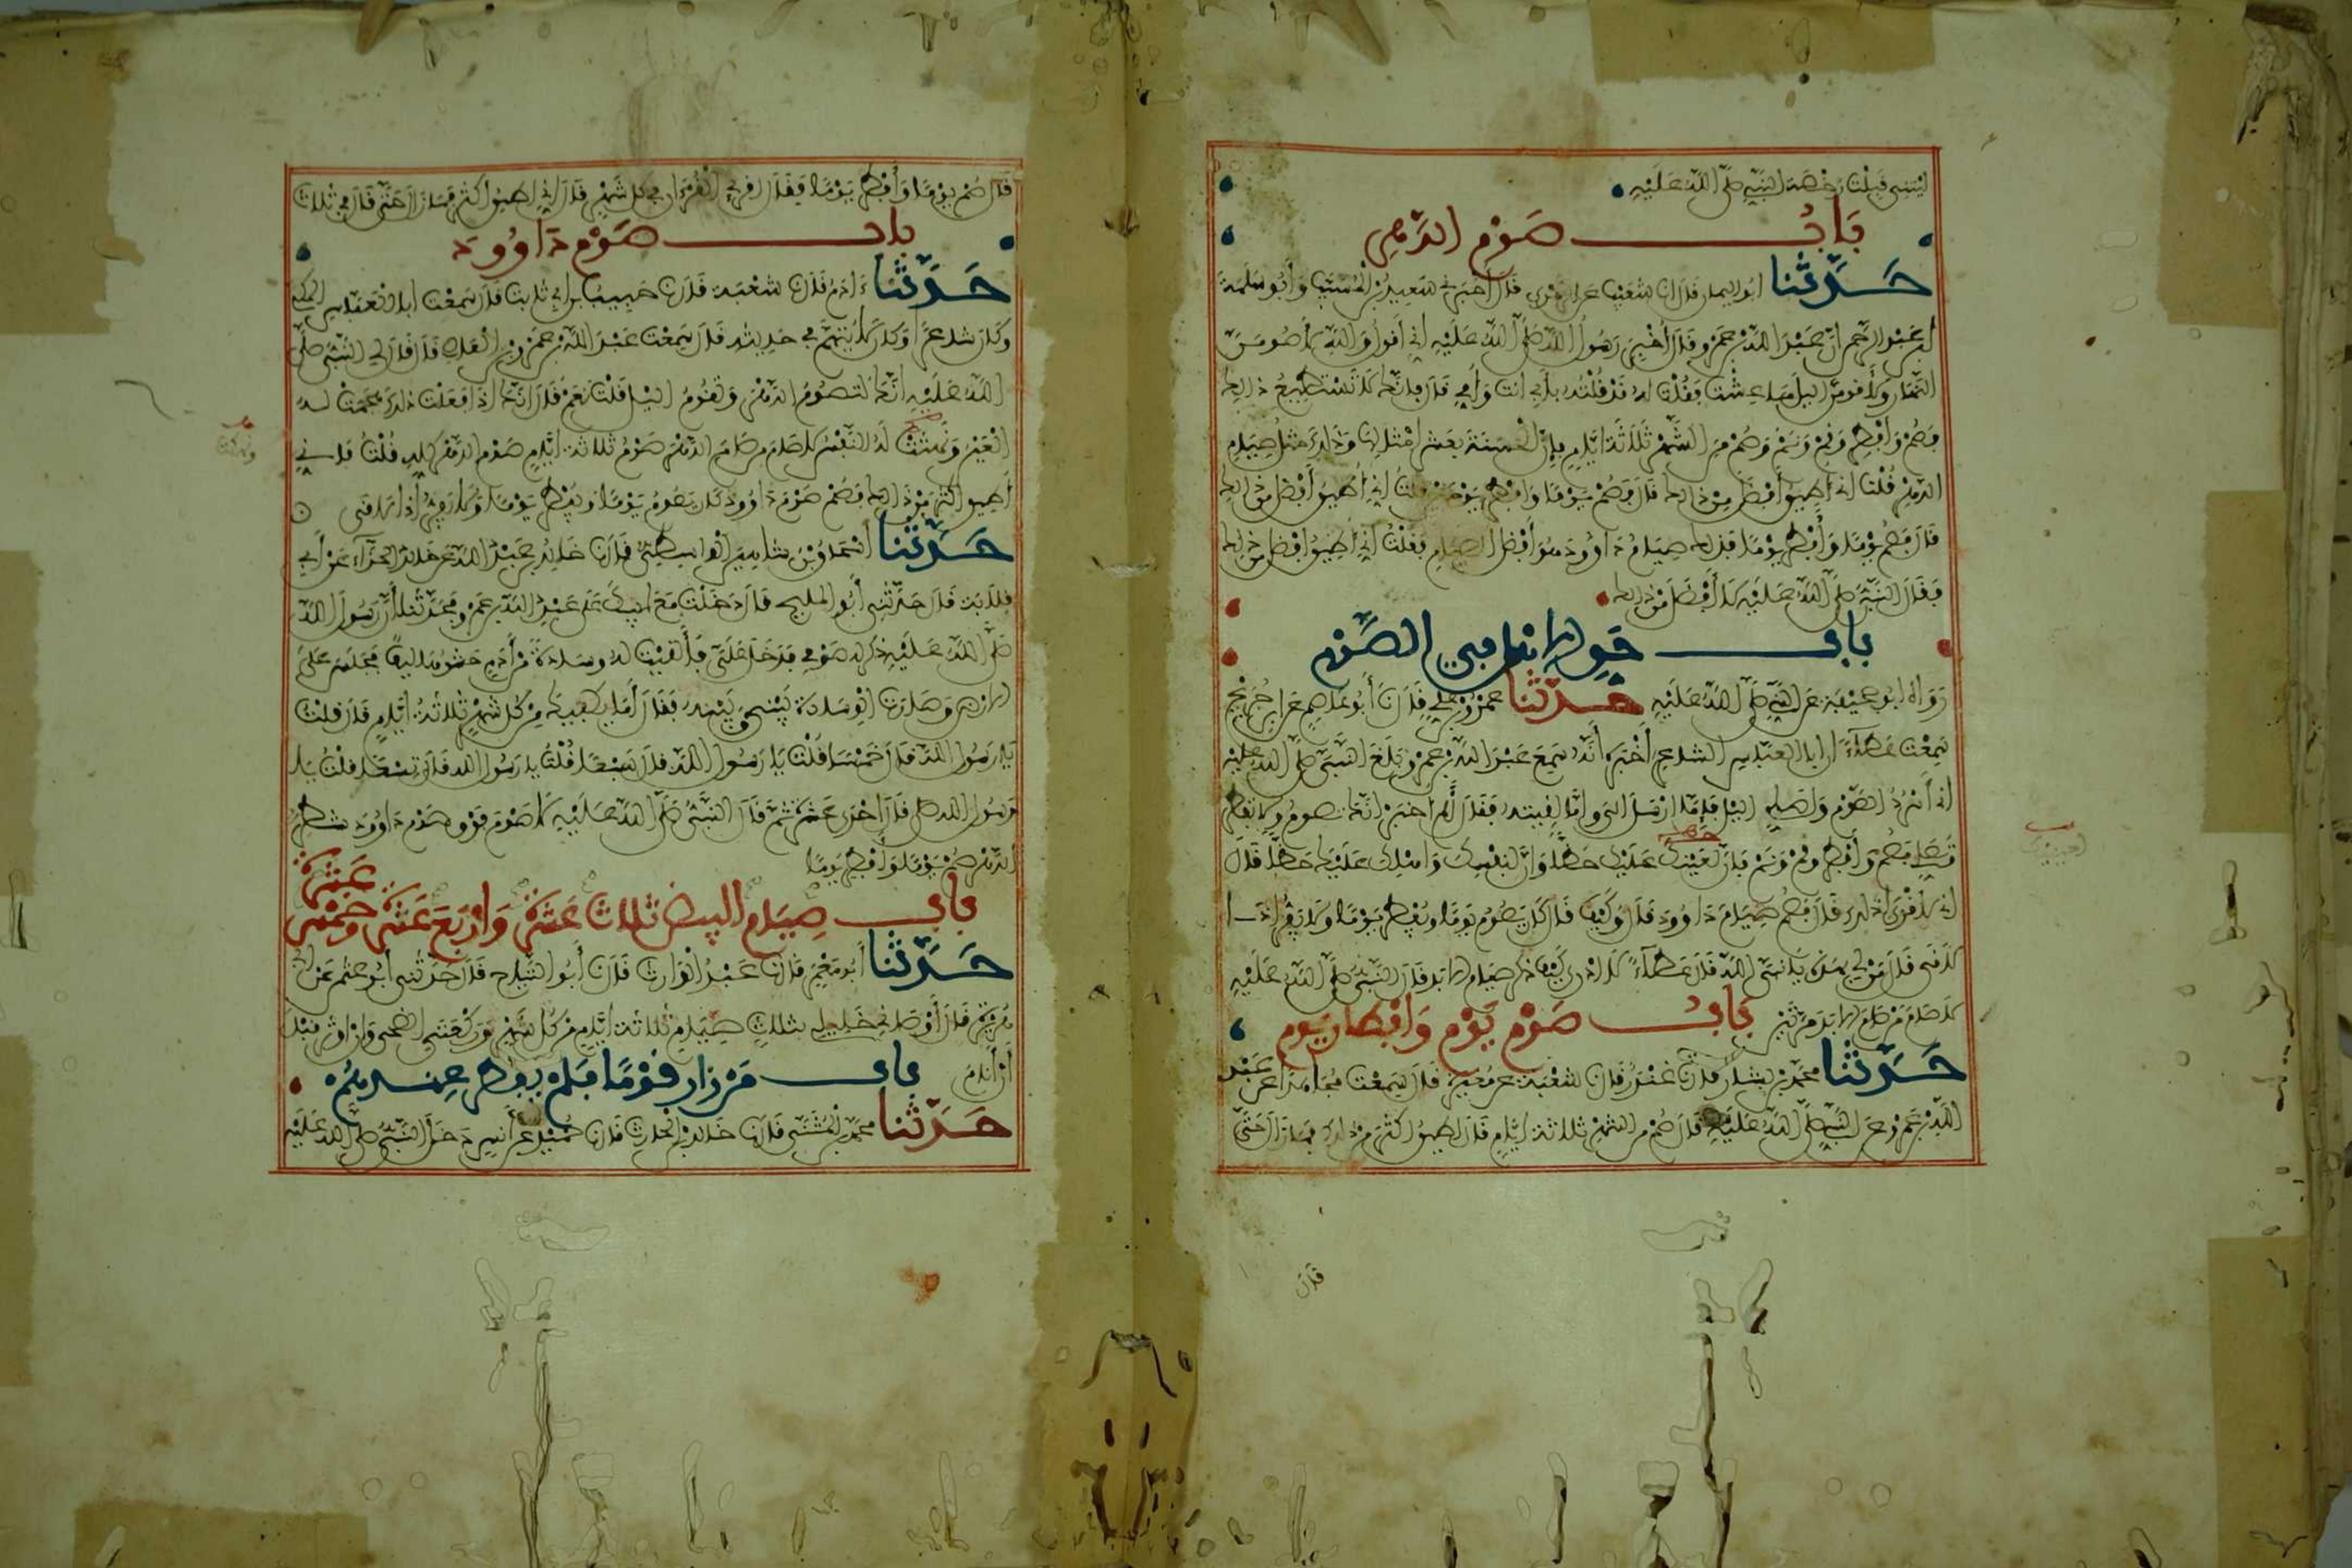 ليتني قبلت رخصة النبي صلى الله عليه
باب صوم الدهر
حدثنا ابو اليمان قال انا شعيب عن الزهري قال أخبرني سعيد بن المسيب وأبو سلمة
ابن عبد الرحمن أن عبد الله بن عمرو قال أخبر رسول الله صلى الله عليه اني أقول والله لأصومن
النهار ولأقومن اليل ما عشت فقلت له قد قلته بأبي انت وأمي قال فإنك لا تستطيع ذلك
فصم وأفطر وقم ونم وصم من الشهر ثلاثة أيام فإن الحسنة بعشر امثالها وذلك مثل صيام
الدهر قلت اني أطيق أفضل من ذلك قال فصم يوما وافطر يومين قلت اني أطيق أفضل من ذلك
قال فصم يوما وأفطر يوما فذلك صيام داوود وهو أفضل الصيام فقلت اني أطيق افضل من ذلك
فقال النبي صلى الله عليه لا أفضل من ذلك
باب حق الاهل في الصوم
رواه ابو جحيفة عن النبي صلى الله عليه حدثنا عمرو بن علي قال نا أبو عاصم عن ابن جريج
سمعت عطاء ان ابا العباس الشاعر أخبره أنه سمع عبد الله بن عمرو بلغ النبي صلى الله عليه
اني أسرد الصوم واصلي اليل فإما ارسل الي وإما لقيته فقال ألم اخبر انك تصوم ولا تفطر
وتصلي فصم وأفطر وقم ونم فإن لعينك عليك حظا وان لنفسك واهلك عليك حظا قال
اني لأقوى لذلك قال فصم صيام داوود قال وكيف قال كان يصوم يوما ويفطر يوما ولا يفر إذا
لاقى قال من لي بهذه يا نبي الله قال عطاء لا ادري كيف ذكر صيام الابد قال النبي صلى الله عليه
لا صام من صام الابد مرتين باب صوم يوم وافطار يوم
حدثنا محمد بن بشار قال نا غندر قال نا شعبة عن مغيرة قال سمعت مجاهدا عن عبد
الله بن عمرو عن النبي صلى الله عليه قال صم من الشهر ثلاثة أيام قال اطيق اكثر من ذلك فما زال حتى
قال
قال صم يوما وأفطر يوما فقال اقرإ القرءان في كل شهر قال اني اطيق اكثر فما زال حتى قال في ثلاث
باب صوم داوود
حدثنا ءادم قال نا شعبة قال نا حبيب بن ابي ثابت قال سمعت ابا العباس المكي
وكان شاعرا وكان لا يتهم في حديثه قال سمعت عبد الله بن عمرو بن العاص قال قال لي النبي صلى
الله عليه انك لتصوم الدهر وتقوم اليل قلت نعم قال انك اذا فعلت ذلك هجمت له
العين ونهثت له النفس لا صام من صام الدهر صوم ثلاثة ايام صوم الدهر كله قلت فإني
اطيق اكثر من ذلك قال فصم صوم داوود كان يصوم يوما ويفطر يوما ولا يفر إذا لاقى
حدثنا اسحاق بن شاهين الواسطي قال نا خالد بن عبد الله عن خالد الحذاء عن أبي
قلابة قال حدثني أبو المليح قال دخلت مع ابيك على عبد الله بن عمرو فحدثنا أن رسول الله
صلى الله عليه ذكر له صومي فدخل علي فألقيت له وسادة من أدم حشوها ليف فجلس على
الارض وصارت الوسادة بيني وبينه فقال أما يكفيك من كل شهر ثلاثة ايام قال قلت
يا رسول الله قال خمسا قلت يا رسول الله قال سبعا قلت يا رسول الله قال تسعا قلت يا
رسول الله قال إحدى عشرة ثم قال النبي صلى الله عليه لا صوم فوق صوم داوود شطر
الدهر صم يوما وأفطر يوما
باب صيام البيض ثلاث عشرة واربع عشرة وخمس عشرة
حدثنا أبو معمر قال نا عبد الوارث قال نا أبو التياح قال حدثني أبو عثمن عن ابي
هريرة قال أوصاني خليلي بثلاث صيام ثلاثة ايام من كل شهر وركعتي الضحى وان اوتر قبل
أن أنام باب من زار قوما فلم يفطر عندهم
حدثنا محمد بن المثنى قال نا خالد بن الحارث قال نا حميد عن أنس دخل النبي صلى الله عليه